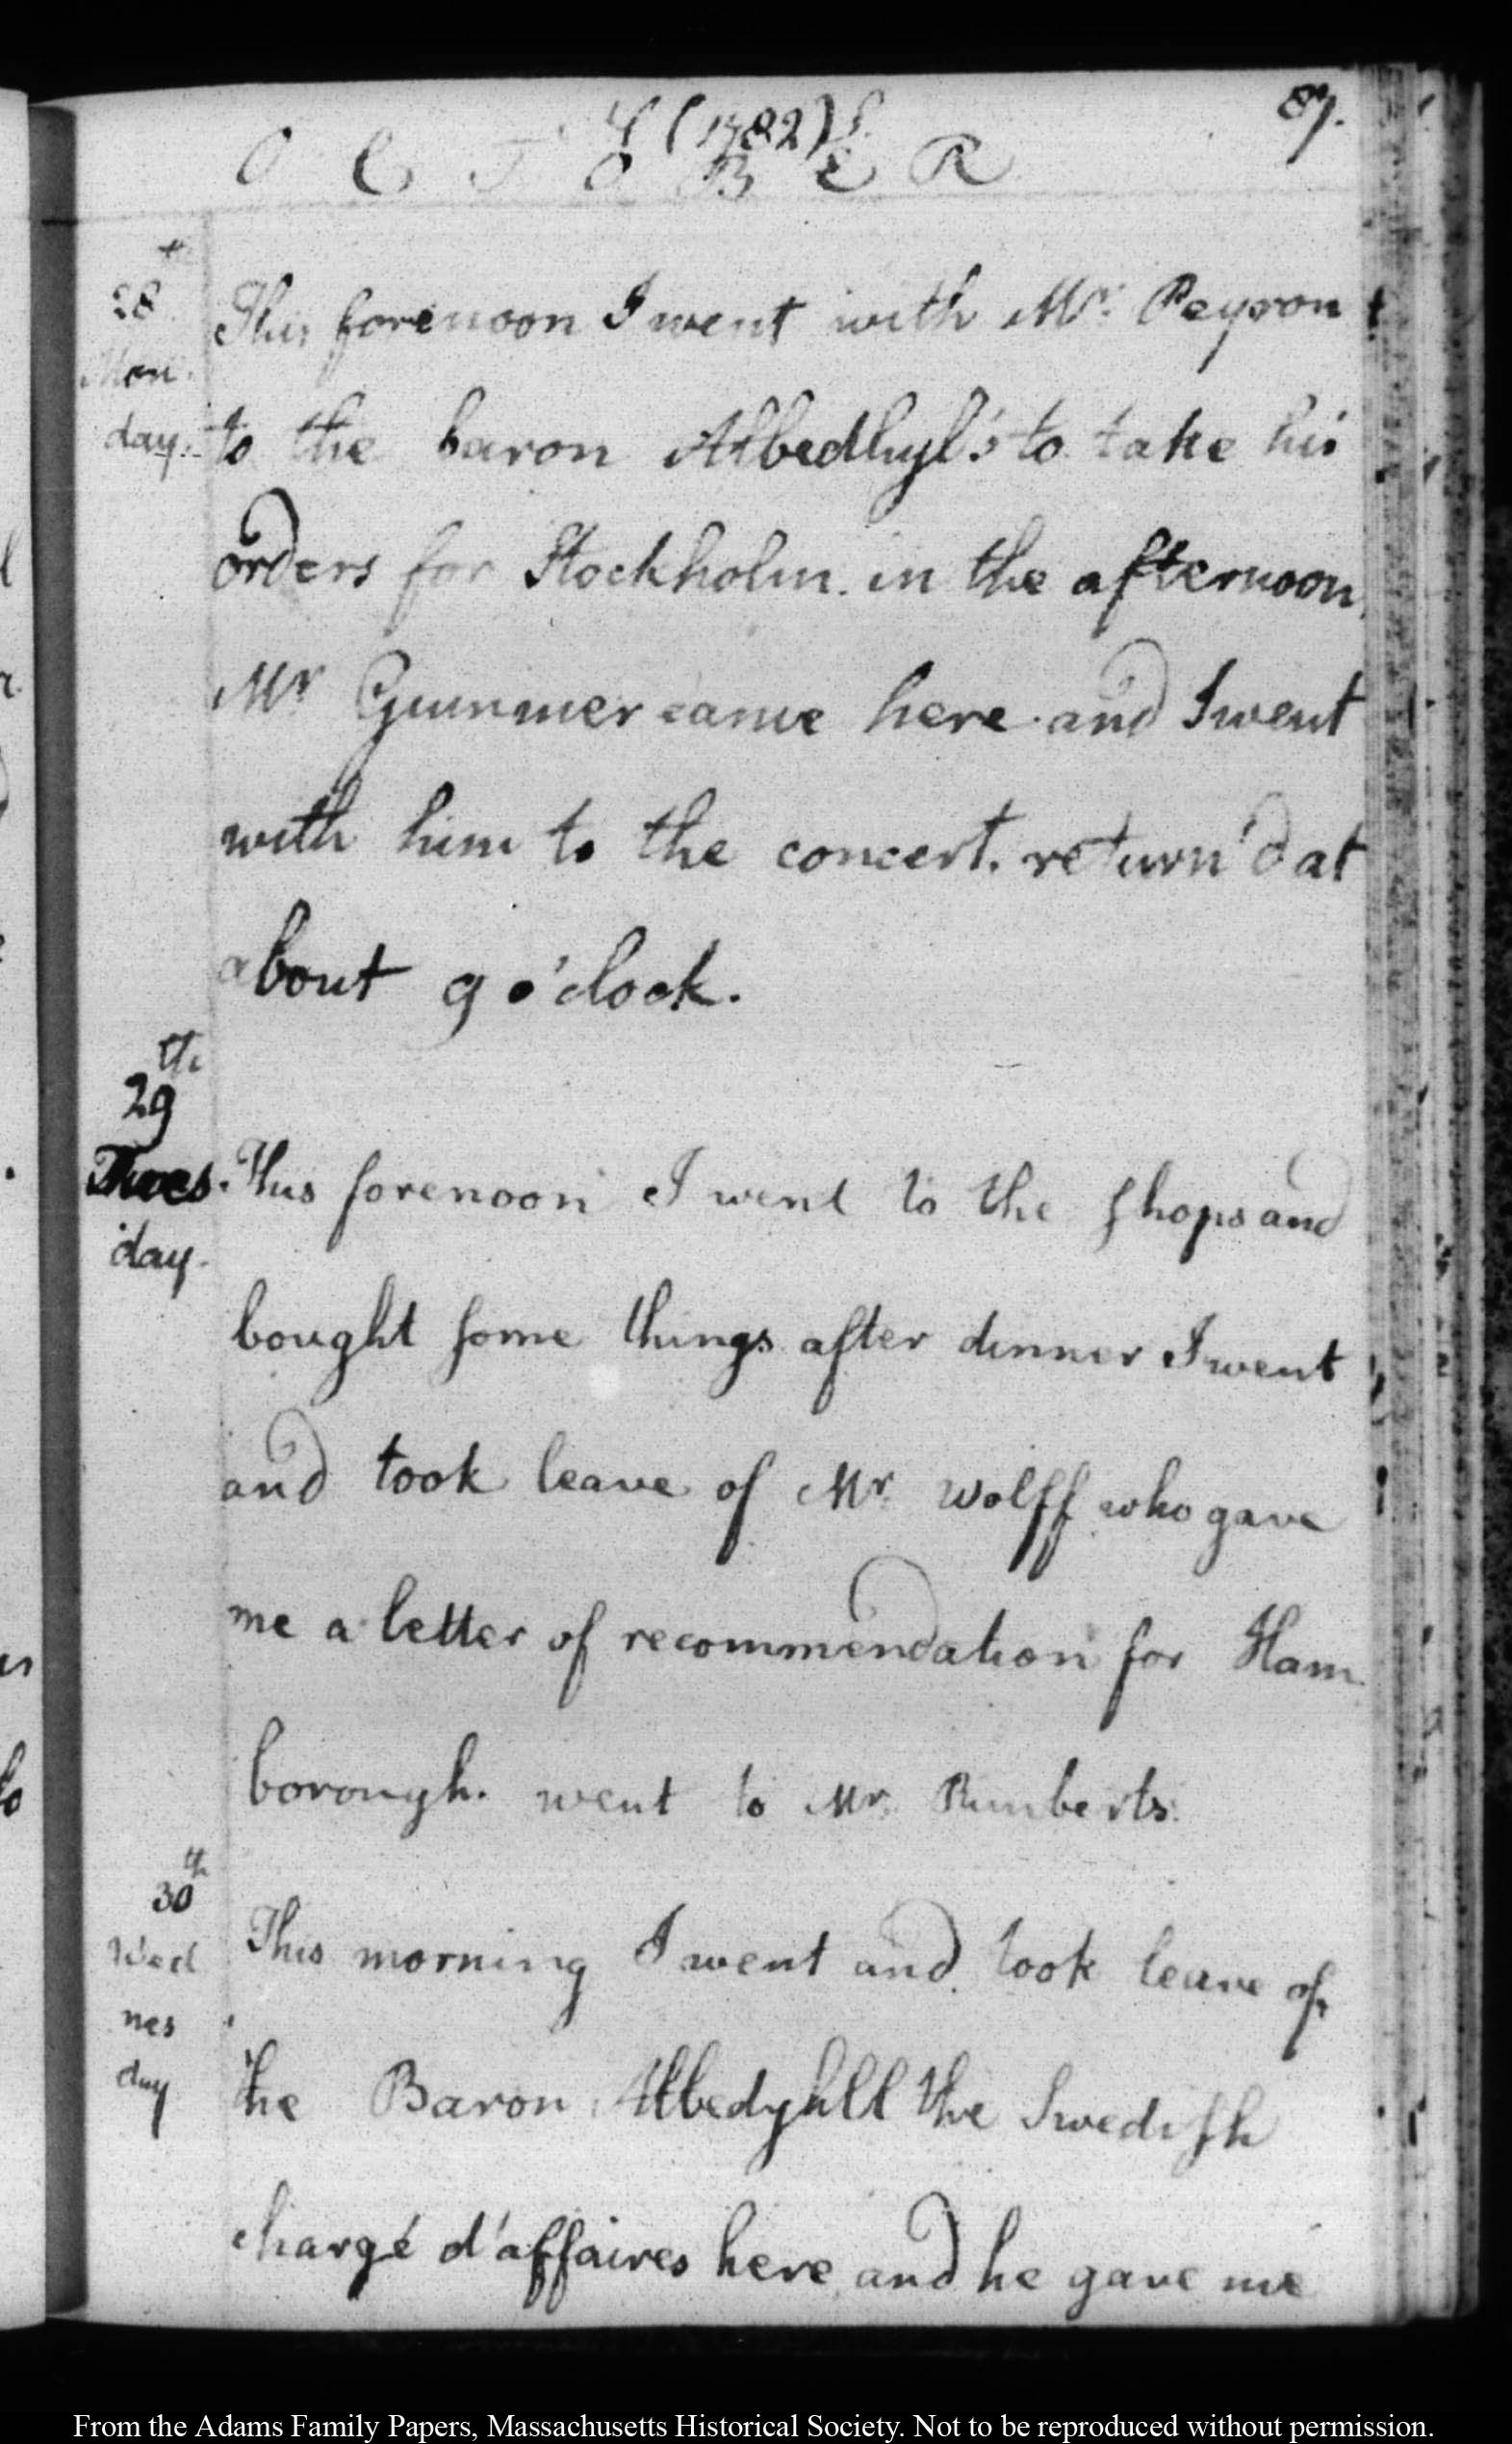 (1782)
87.
OCTOBER
28
Mon.
day.
This forenoon I went with Mr. Peyron
to the baron Albedhyl's to take his
orders for Stockholm. in the afternoon
Mr Gummer came here and I went
with him to the concert. return'd at
about 9 o'clock.
29th
Tues.
day.
This forenoon I went to the shops and
bought some things after dinner I went
and took leave of Mr. Wolff who gave
me a letter of recommendation for Ham
borough. went to Mr. Rimberts.
30th
Wed
nes
day
This morning I went and took leave of
the Baron Albedyhll the Swedish
chargé d'affaires here and he gave me
From the Adams Family Papers, Massachusetts Historical Society. Not to be reproduced without permission.